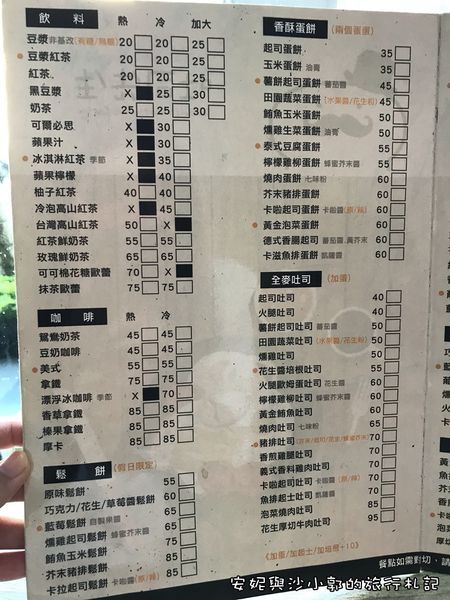 飲料 熱 冷 加大
豆漿 非基改(有糖/無糖) 20 20 25
豆漿紅茶 20 20 25
紅茶 20 20 25
黑豆漿 X 25 30
奶茶 25 25 30
可爾必思 X 30
蘋果汁 X 30
冰淇淋紅茶 季節 X 35
蘋果檸檬 X 40
柚子紅茶 40 40
冷泡高山紅茶 X 45
台灣高山紅茶 50 X
紅茶鮮奶茶 55 55
玫瑰鮮奶茶 65 65
可可棉花糖歐蕾 70 X
抹茶歐蕾 75 75
咖啡 熱 冷
鴛鴦奶茶 45 45
豆奶咖啡 45 45
美式 55 55
拿鐵 75 75
漂浮冰咖啡 季節 X 70
香草拿鐵 85 85
榛果拿鐵 85 85
摩卡 85 85
鬆餅 (假日限定)
原味鬆餅 55
巧克力/花生/草莓醬鬆餅 60
藍莓鬆餅 自製果醬 65
燻雞起司鬆餅 蜂蜜芥末醬 65
鮪魚玉米鬆餅 75
芥末豬排鬆餅 85
卡拉起司鬆餅 卡啦醬(原/辣) 85
香酥蛋餅 (兩個蛋蛋)
起司蛋餅 35
玉米蛋餅 油膏 35
薯餅起司蛋餅 蕃茄醬 40
田園蔬菜蛋餅 (水果醬/花生粉) 45
鮪魚玉米蛋餅 50
燻雞生菜蛋餅 油膏 50
泰式豆腐蛋餅 55
檸檬雞柳蛋餅 蜂蜜芥末醬 55
燒肉蛋餅 七味粉 60
芥末豬排蛋餅 60
卡啦起司蛋餅 卡啦醬(原/辣) 60
黃金泡菜蛋餅 60
德式香腸起司 蕃茄醬、黃芥末 60
卡滋魚排蛋餅 凱薩醬 65
全麥吐司 (加蛋)
起司吐司 40
火腿吐司 40
薯餅起司吐司 蕃茄醬 50
田園蔬菜吐司 (水果醬/花生粉) 50
燻雞吐司 55
花生醬培根吐司 55
火腿歐姆蛋吐司 花生醬 60
檸檬雞柳吐司 蜂蜜芥末醬 60
黃金鮪魚吐司 60
燒肉吐司 七味粉 65
豬排吐司 70
香煎雞腿吐司 70
義式香料雞肉吐司 70
卡啦起司吐司 卡啦醬(原/辣) 70
魚排起士吐司 凱薩醬 70
泡菜燒肉吐司 85
花生厚切牛肉吐司 95
(加蛋/加起士/加培根+10)
餐點如需對切、請
安妮與沙小郭的旅行札記